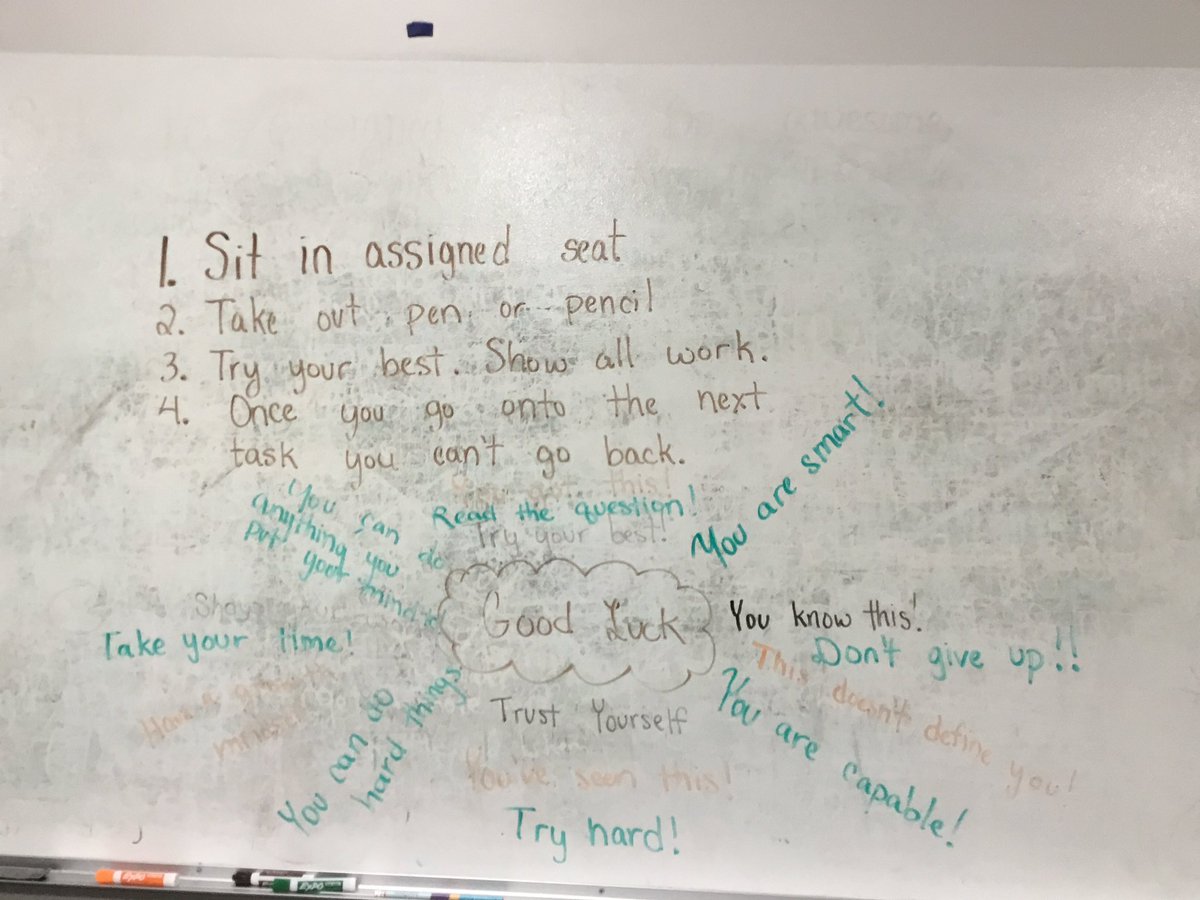 1. Sit in assigned seat
2. Take out pen or pencil
3. Try your best. Show all work.
4. Once you go onto the next
task you can't go back.
You got this!
Read the question!
Try your best!
You can do
anything you
put your mind to
You are smart!
Show your
Good Luck
You know this!
Take your time!
Don't give up!!
This doesn't define you!
You are capable!
Have a growth
mindset
You can do
hard things
Trust Yourself
You've seen this!
Try hard!
EXPO
EXPO